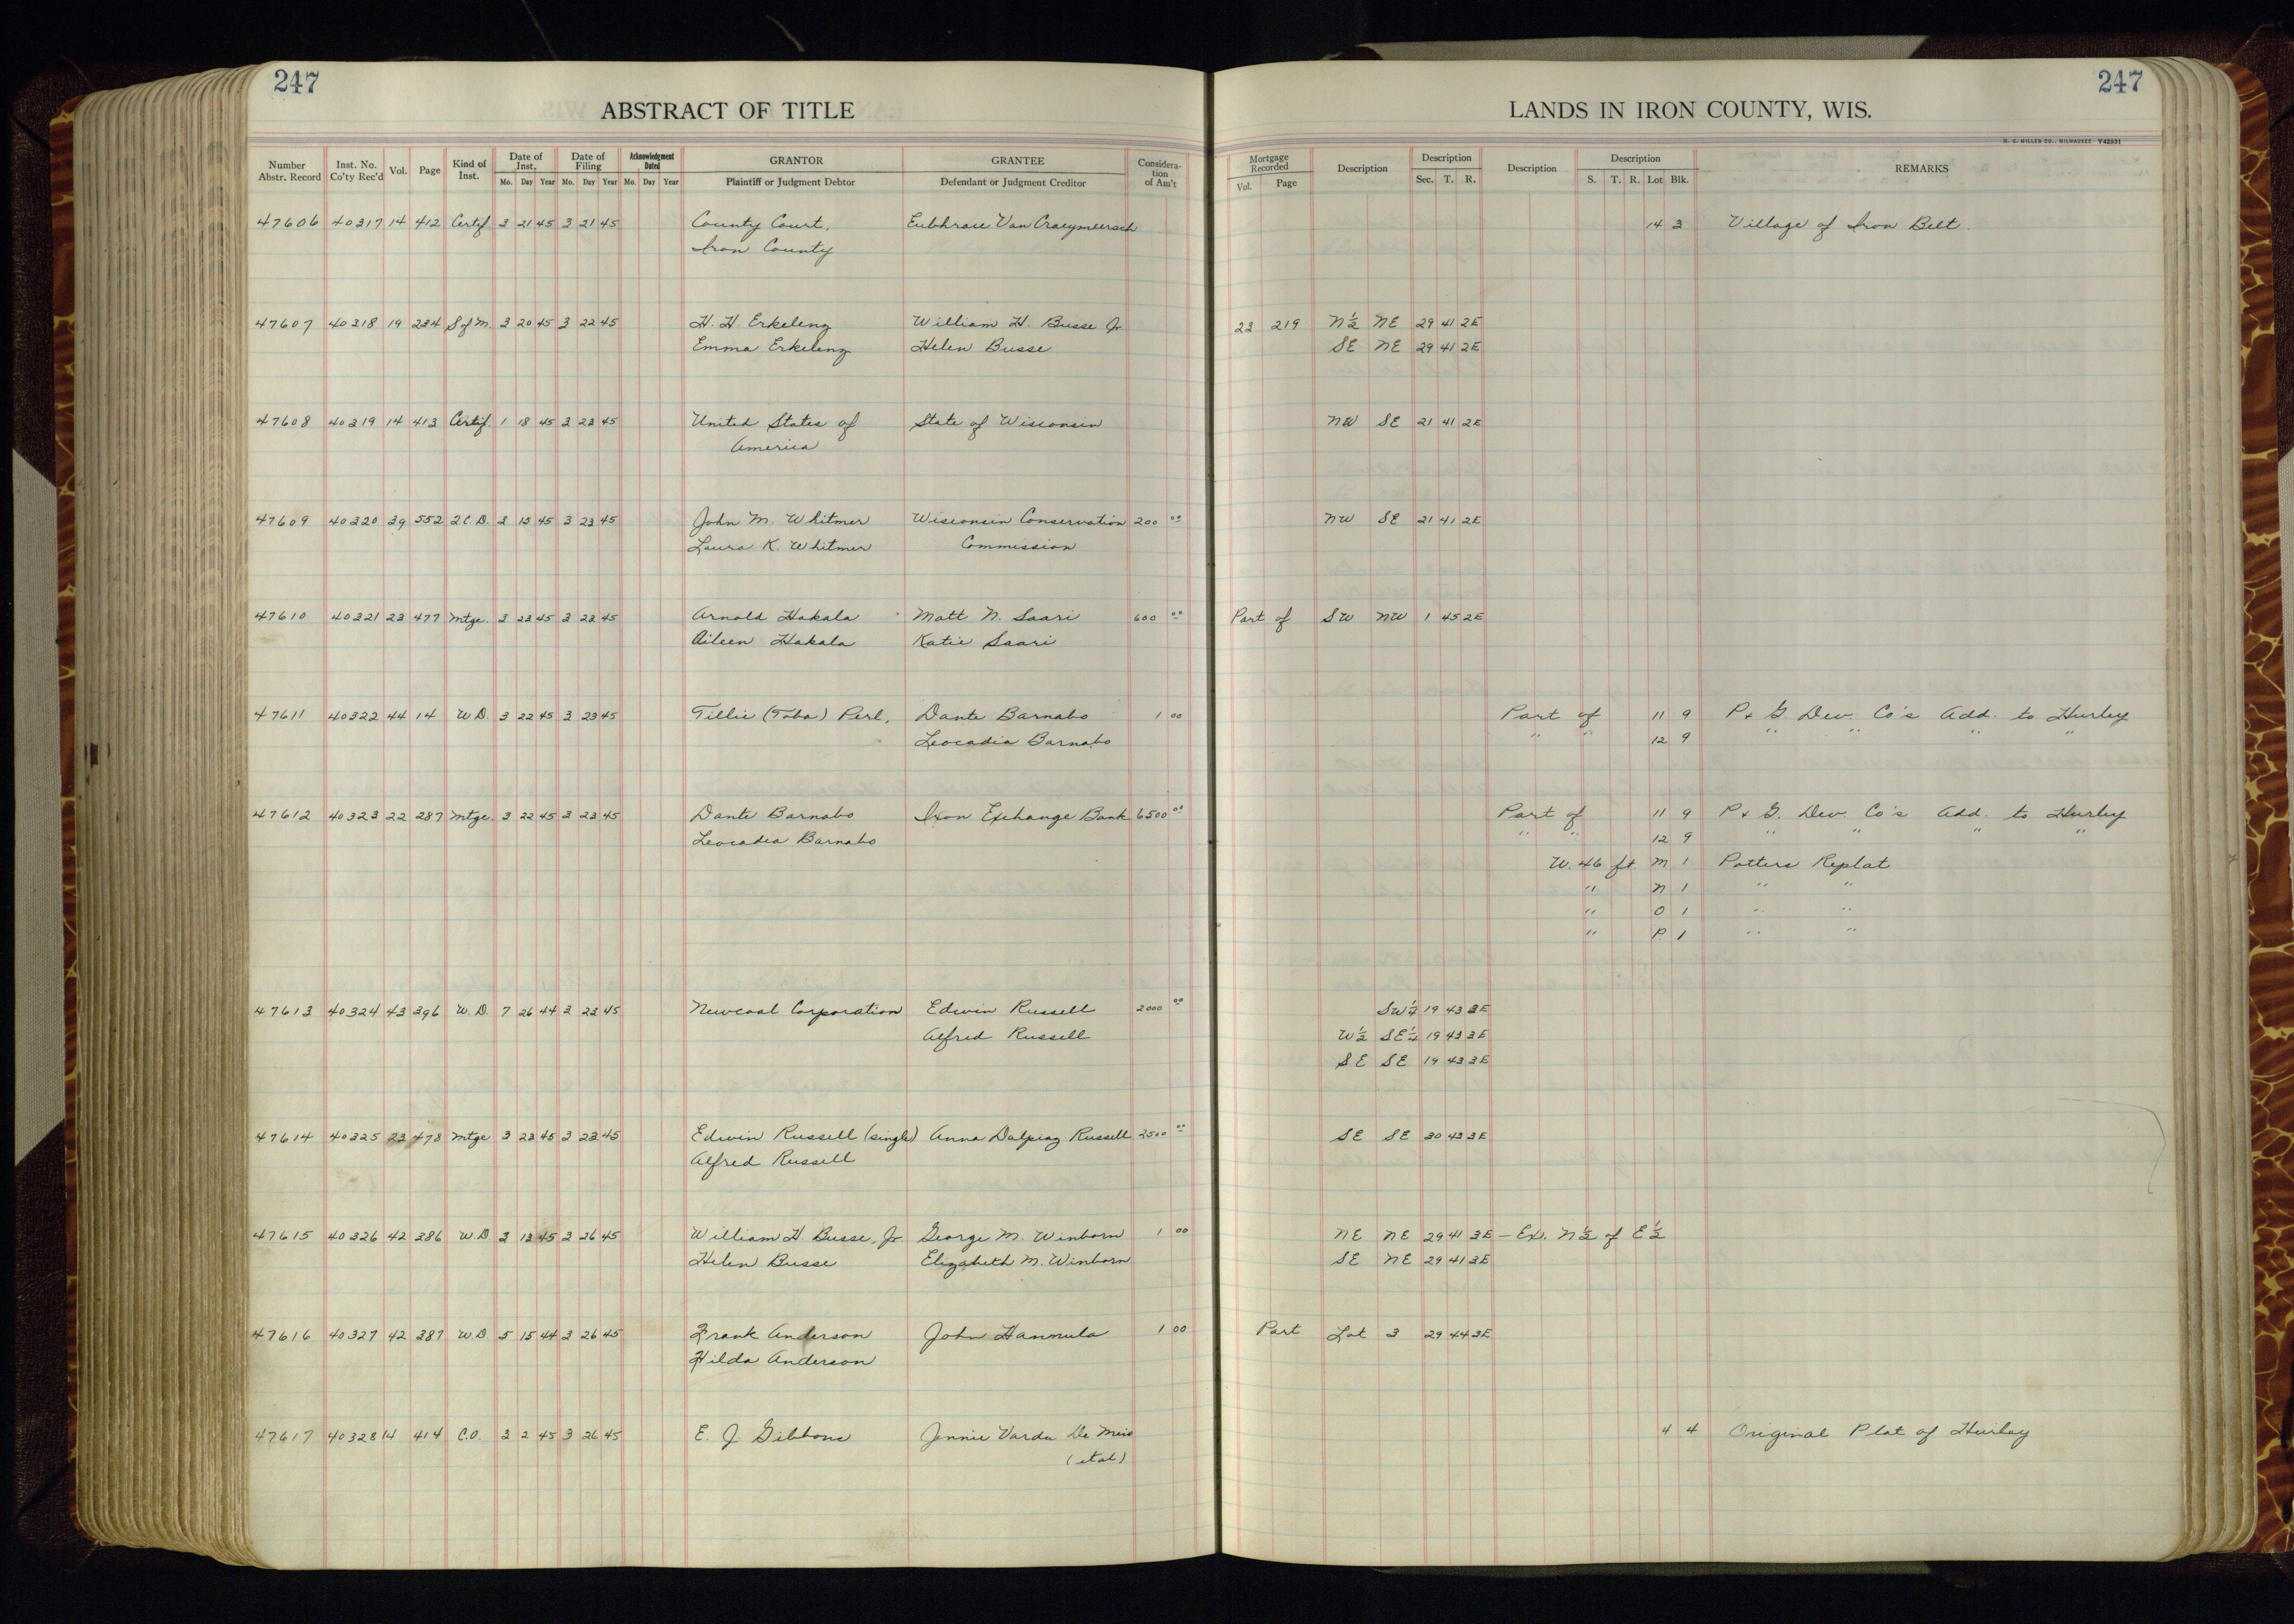 247
ABSTRACT OF TITLE
Number Abstr. Record Inst. No. Co'ty Rec'd Vol. Page Kind of Inst. Date of Inst. Mo. Day Year Date of Filing Mo. Day Year Acknowledgment Dated Mo. Day Year GRANTOR Plaintiff or Judgment Debtor GRANTEE Defendant or Judgment Creditor Considera-tion of Am't
247
LANDS IN IRON COUNTY, WIS.
H. C. MILLER CO., MILWAUKEE Y42931
Mortgage Recorded Vol. Page Description Description Sec. T. R. Description Description S. T. R. Lot Blk. REMARKS
47606 40317 14 412 Certif. 3 21 45 3 21 45 County Court, Van Craeymeersch 14 3 Village of Iron Belt
Iron County
47607 40318 19 234 S of M. 3 20 45 3 22 45 H. H. Erkelenz William H. Busse Jr. 23 219 N½ NE 29 41 2E
Emma Erkelenz Helen Busse SE NE 29 41 2E
47608 40319 14 413 Certif. 1 18 45 3 23 45 United States of State of Wisconsin NW SE 21 41 2E
America
47609 40320 39 552 2.C.D. 3 15 45 3 23 45 John M. Whitmer Wisconsin Conservation 200 00 NW SE 21 41 2E
Laura K. Whitmer Commission
47610 40321 23 477 Mtge. 3 23 45 3 23 45 Arnold Hakala Matt N. Saari 600 00 Part of SW NW 1 45 2E
Aileen Hakala Katie Saari
47611 40322 44 14 W.D. 3 22 45 3 23 45 Tillie (Toba) Perl, Dante Barnabo 1 00 Part of 11 9 P & G. Dev. Co's Add. to Hurley
Leocadia Barnabo " " 12 9 " " " "
47612 40323 22 287 Mtge. 3 22 45 3 23 45 Dante Barnabo Iron Exchange Bank 6500 00 Part of 11 9 P & G. Dev. Co's Add. to Hurley
Leocadia Barnabo " " 12 9 " " " "
W. 46 ft M 1 Potters Replat
" N 1 " "
" O 1 " "
" P 1 " "
47613 40324 43 396 W.D. 7 26 44 3 23 45 Newcoal Corporation Edwin Russell 2000 00 SW¼ 19 43 3E
Alfred Russell W½ SE¼ 19 43 3E
SE SE 19 43 3E
47614 40325 23 478 Mtge 3 23 45 3 23 45 Edwin Russell (single) Anna Dalpiaz Russell 2500 00 SE SE 30 43 3E
Alfred Russell
47615 40326 42 386 W.D. 3 13 45 3 26 45 William H. Busse, Jr. George M. Winborn 1 00 NE NE 29 41 3E – Ex. N½ of E½
Helen Busse Elizabeth M. Winborn SE NE 29 41 3E
47616 40327 42 387 W.D. 5 15 44 3 26 45 Frank Anderson John Hannula 1 00 Part Lot 3 29 44 3E
Hilda Anderson
47617 40328 14 414 C.O. 3 2 45 3 26 45 E. J. Gibbons Jennie Varda De 4 4 Original Plat of Hurley
(etal)